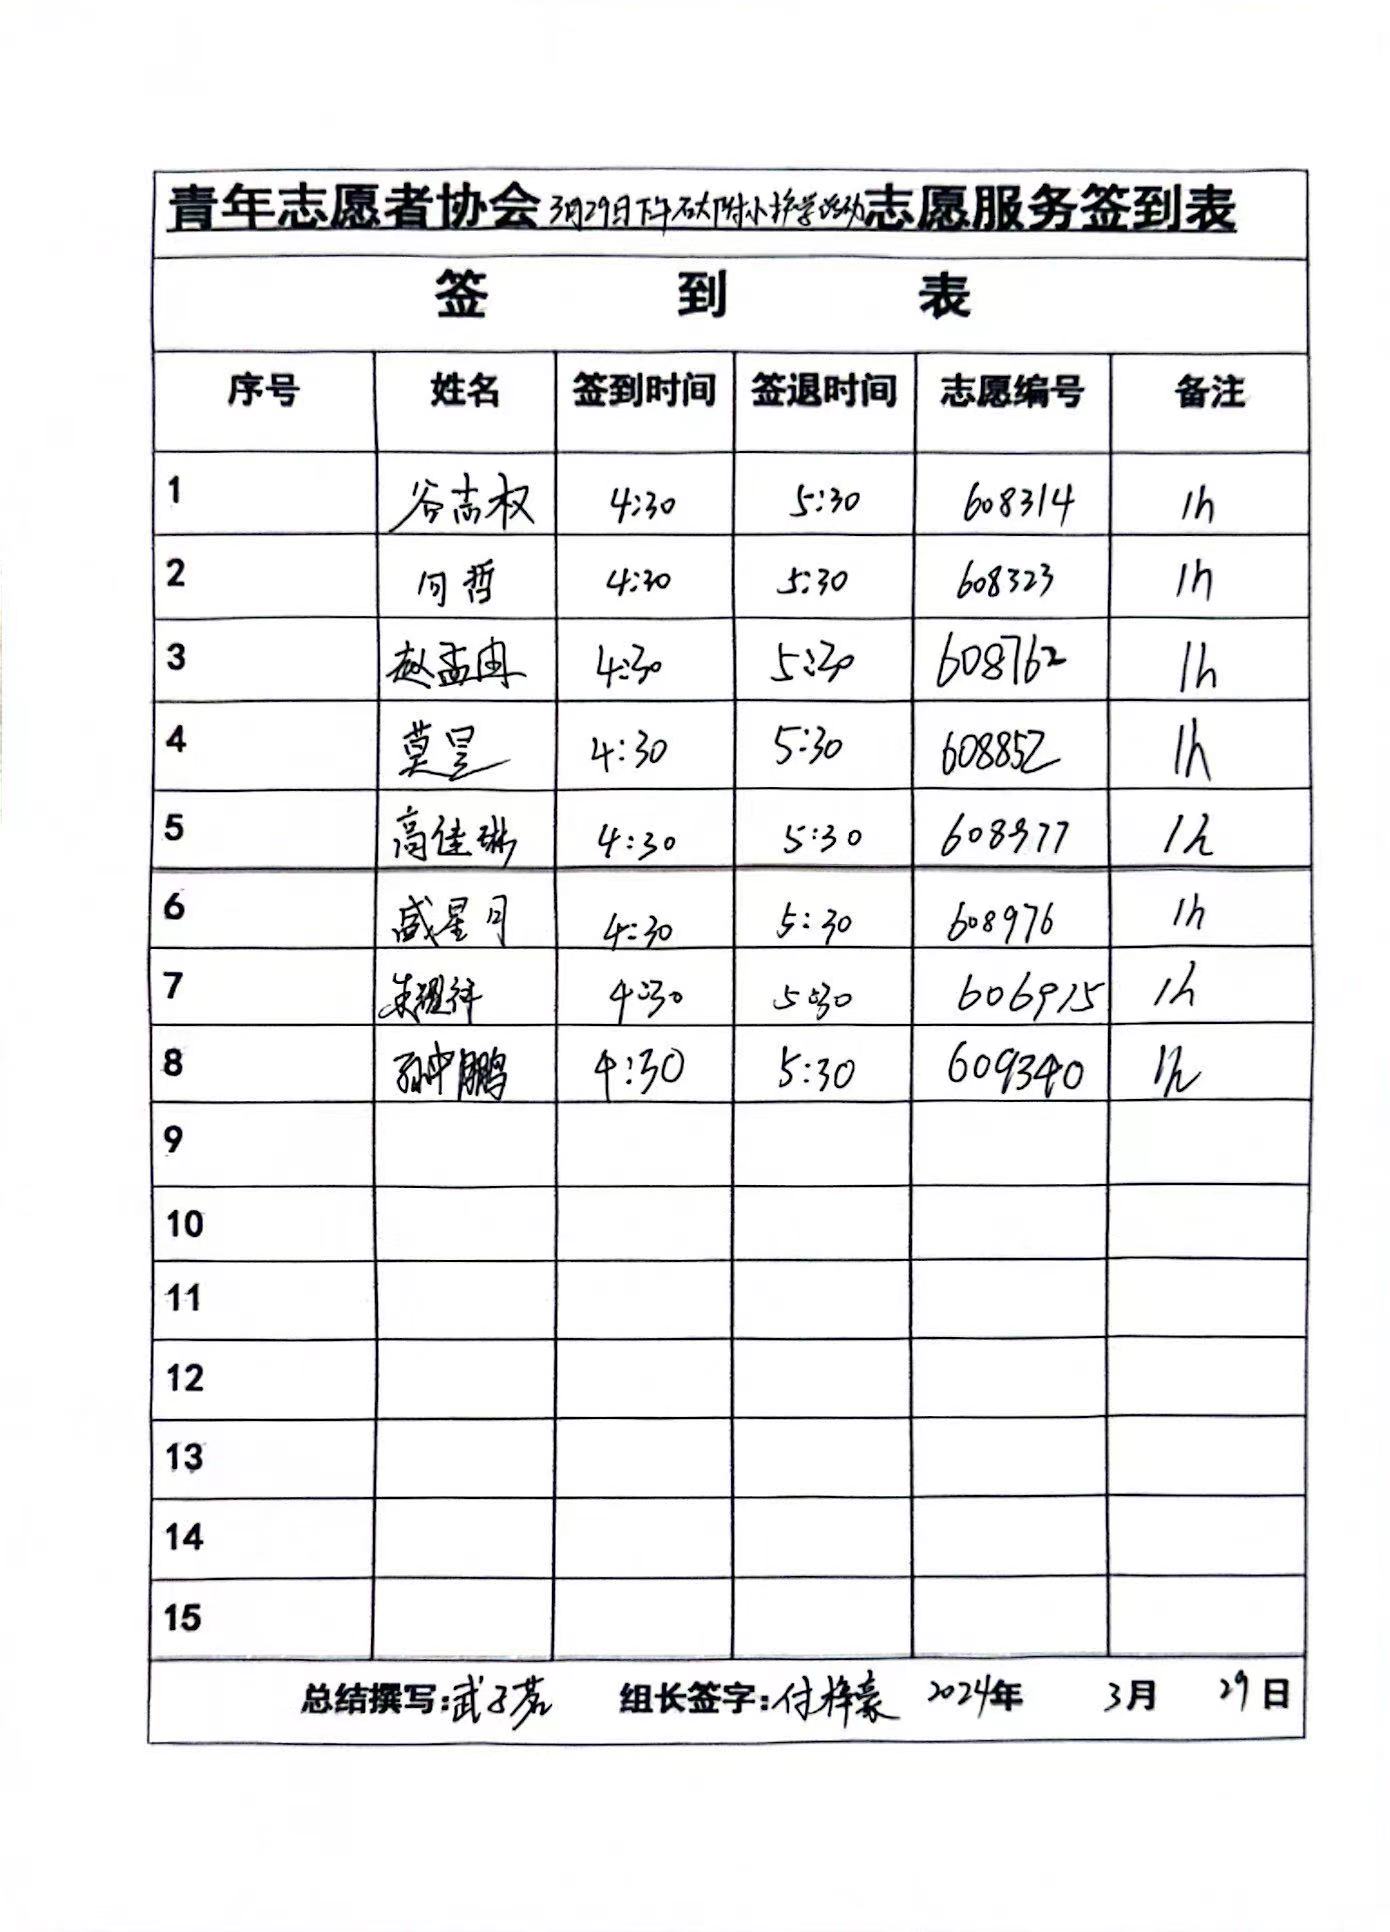 青年志愿者协会3月29日下午石大附小护学活动志愿服务签到表
签 到 表
序号 姓名 签到时间 签退时间 志愿编号 备注
1 谷志权 4:30 5:30 608314 1h
2 何哲 4:30 5:30 608323 1h
3 赵孟冉 4:30 5:30 608762 1h
4 莫昱 4:30 5:30 608852 1h
5 高佳琳 4:30 5:30 608977 1h
6 臧星月 4:30 5:30 608976 1h
7 朱耀祥 4:30 5:30 606915 1h
8 孙中鹏 4:30 5:30 609340 1h
9
10
11
12
13
14
15
总结撰写:武子茗 组长签字:付梓豪 2024年 3月 29日